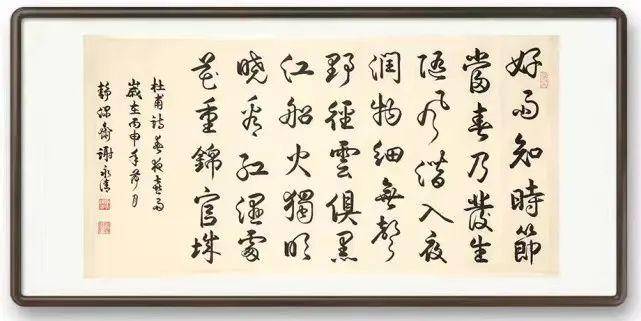 好雨知時節
當春乃發生
随风潛入夜
潤物細無聲
野徑雲俱黑
江船火獨明
曉看紅濕處
花重錦官城
杜甫詩春夜喜雨
歲在丙申年月
静齋謝永清